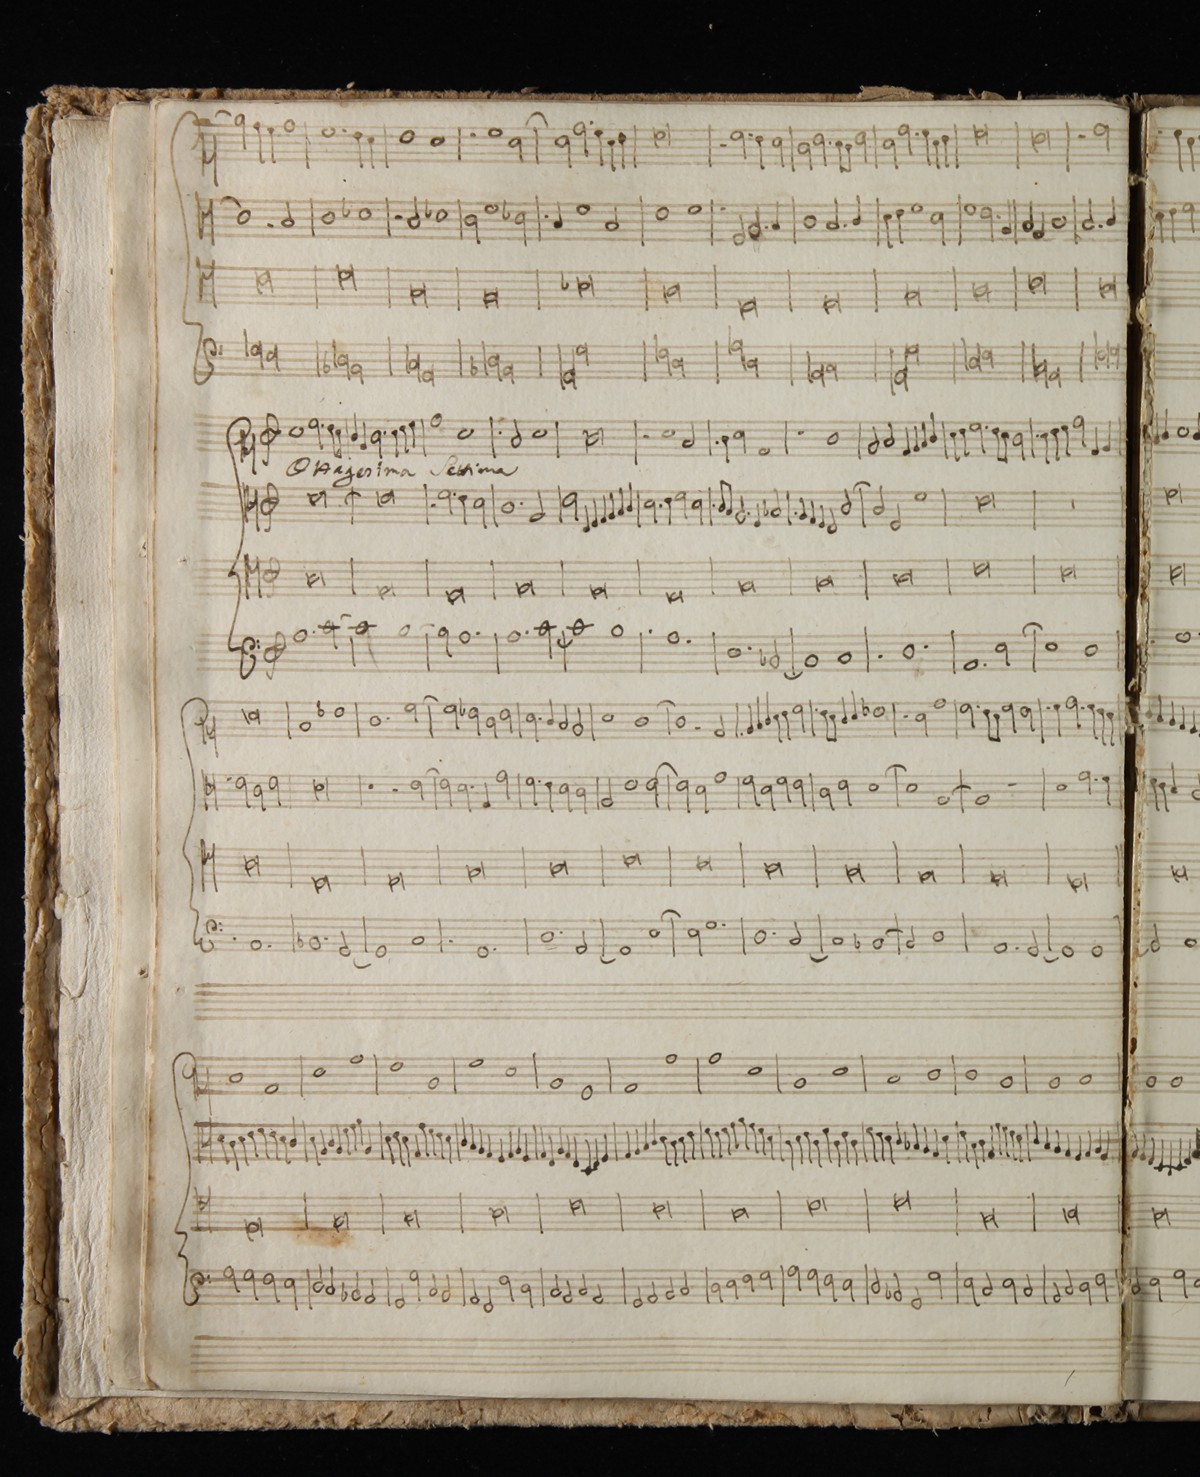 Ottagesima Settima